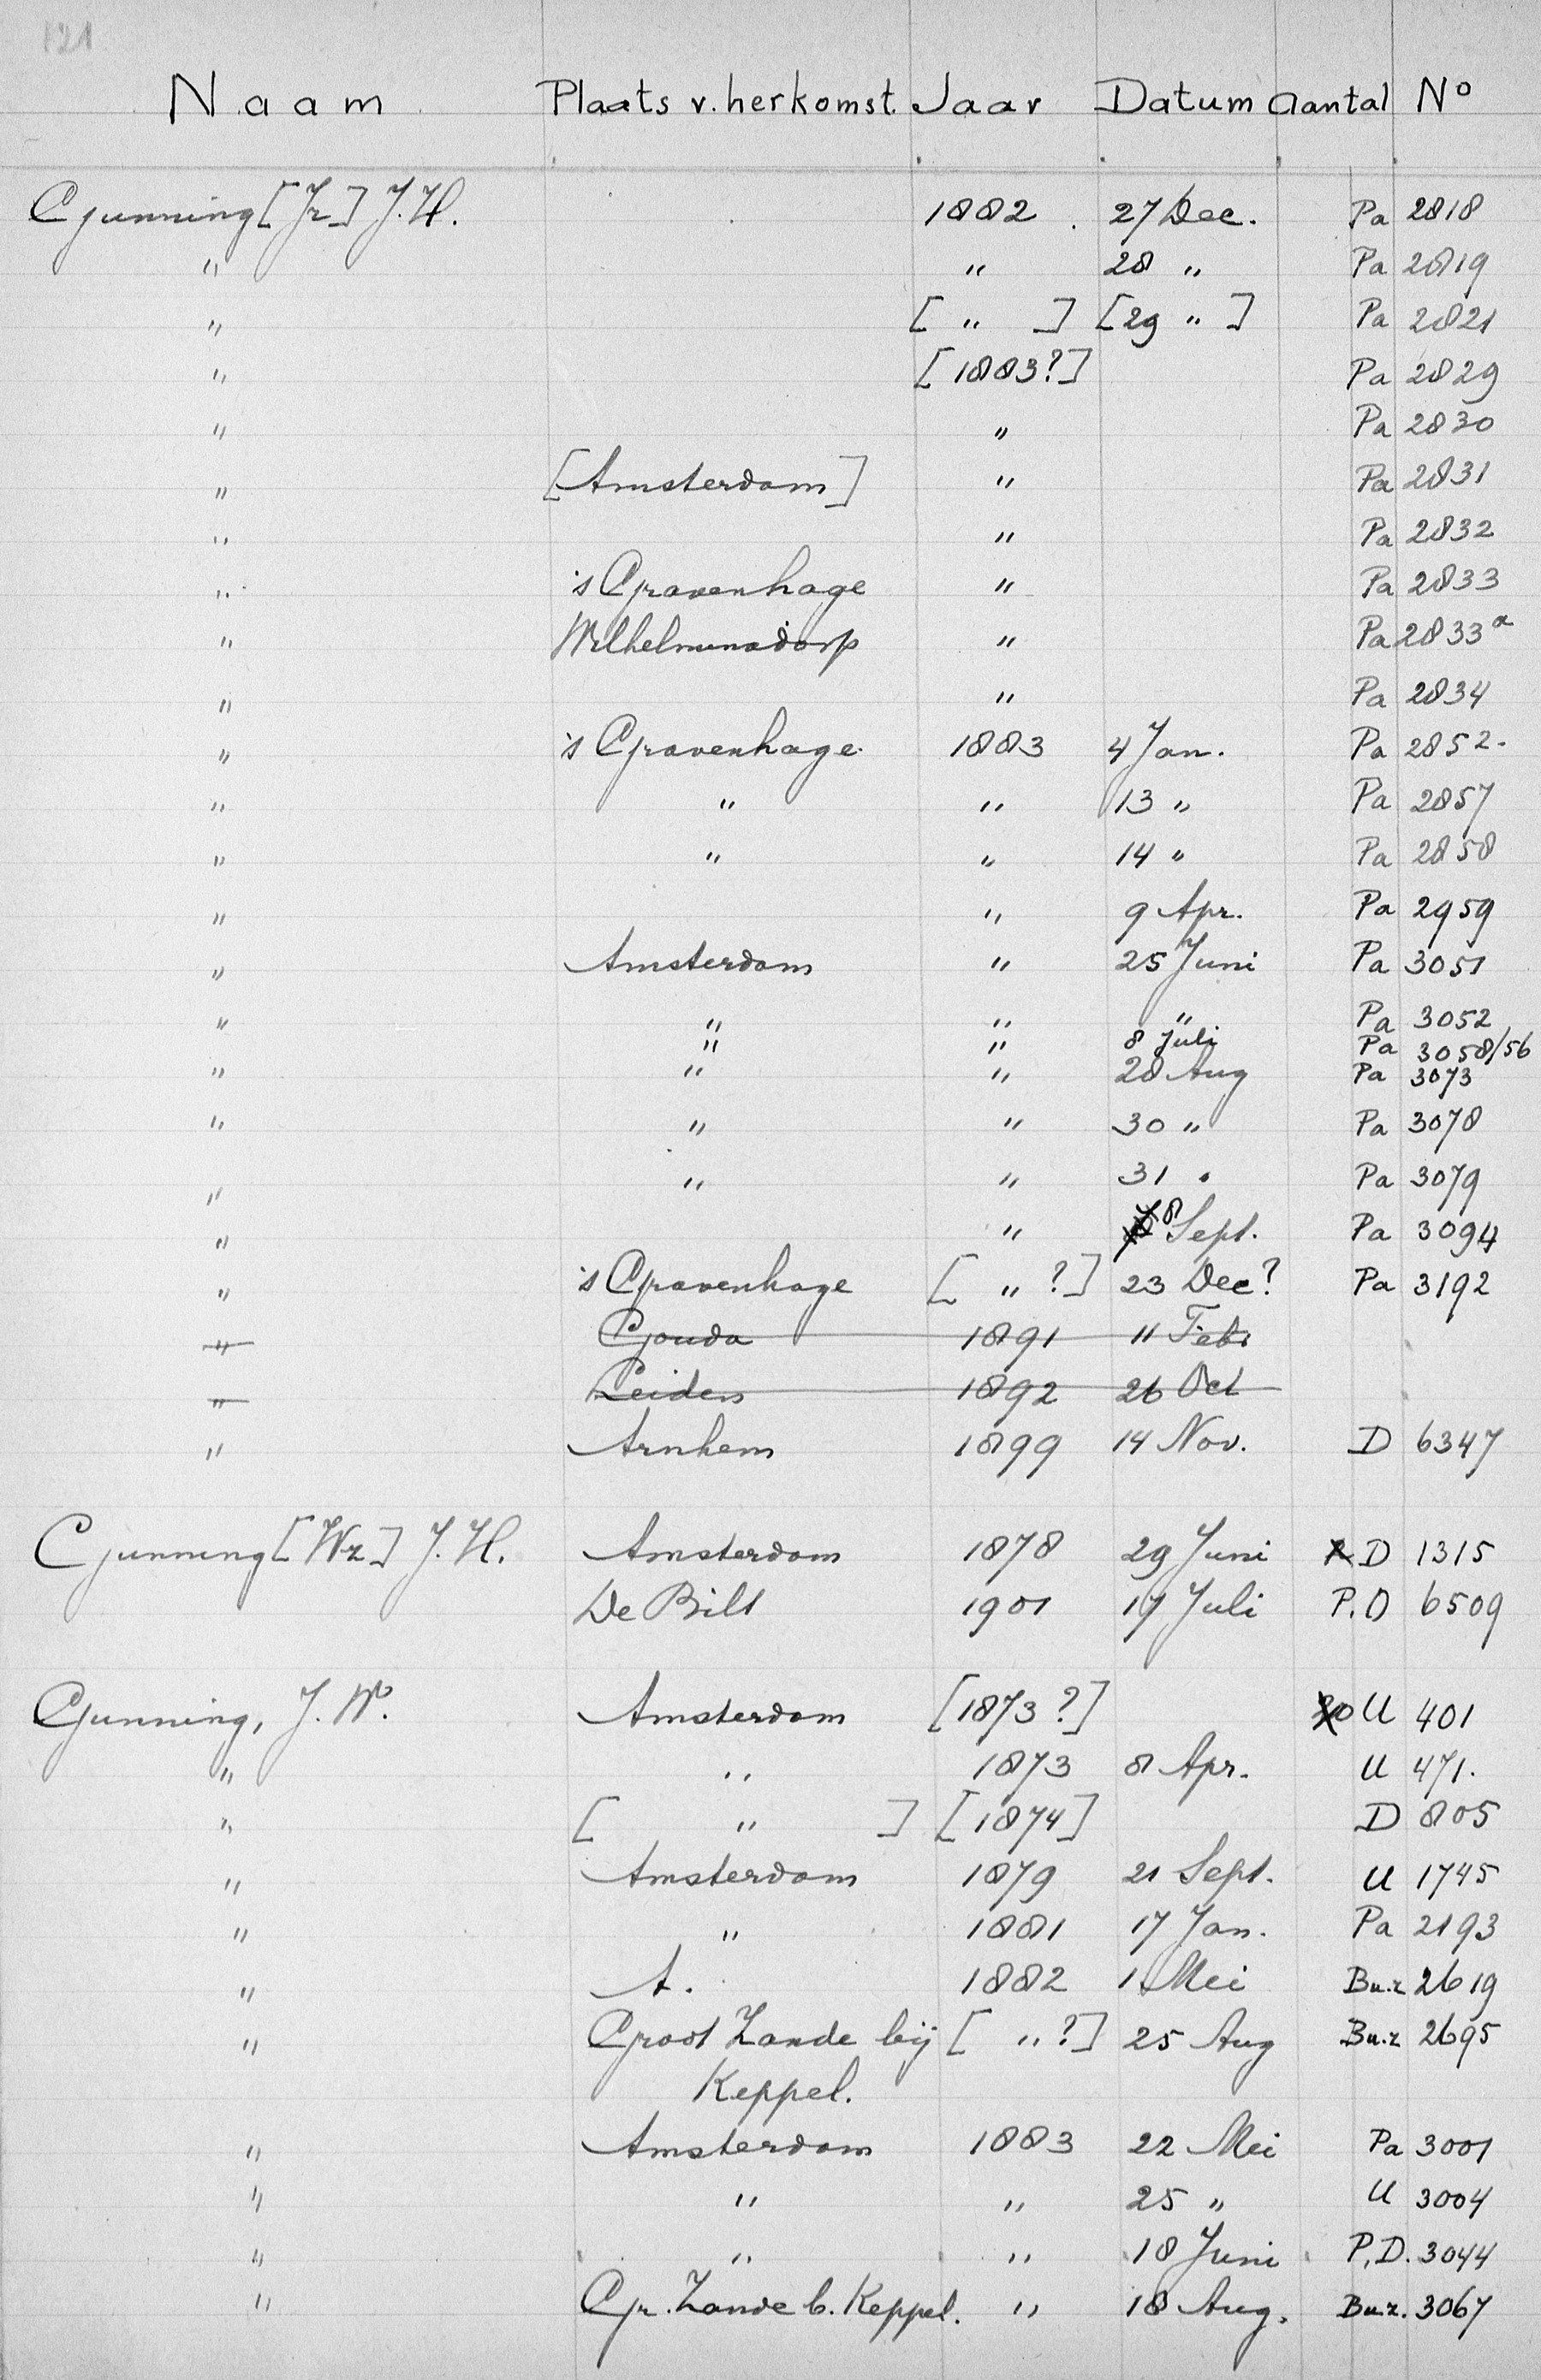 121
Naam Plaats v. herkomst. Jaar Datum Aantal No
Gunning [Jr] J.H. 1882. 27 Dec. Pa 2818
" " 28 " Pa 2819
" [ " ] [29 " ] Pa 2821
" [1883?] Pa 2829
" " Pa 2830
" [Amsterdam] " Pa 2831
" " Pa 2832
" 's Gravenhage " Pa 2833
" Wilhelminadorp " Pa 2833a
" " Pa 2834
" 's Gravenhage 1883 4 Jan. Pa 2852.
" " " 13 " Pa 2857
" " " 14 " Pa 2858
" " 9 Apr. Pa 2959
" Amsterdam " 25 Juni Pa 3051
" " " " Pa 3052
" " 8 Juli Pa 3058/56
" " " 28 Aug Pa 3073
" " " 30 " Pa 3078
" " " 31 " Pa 3079
" " 8 Sept. Pa 3094
" 's Gravenhage [ " ?] 23 Dec? Pa 3192
" Gouda 1891 11 Feb.
" Leiden 1892 26 Oct
" Arnhem 1899 14 Nov. D 6347
Gunning [Wz] J.H. Amsterdam 1878 29 Juni D 1315
De Bilt 1901 17 Juli P.D 6509
Gunning, J.W. Amsterdam [1873?] U 401
" " 1873 8 Apr. U 471.
" [ " ] [1874] D 805
" Amsterdam 1879 21 Sept. U 1745
" " 1881 17 Jan. Pa 2193
" A. 1882 1 Mei Bu.z 2619
" Groot Zande bij [ " ?] 25 Aug Bu.z 2695
Keppel.
" Amsterdam 1883 22 Mei Pa 3001
" " " 25 " U 3004
" " " 18 Juni P.D. 3044
" Gr. Zande b. Keppel. " 18 Aug. Bu.z. 3067